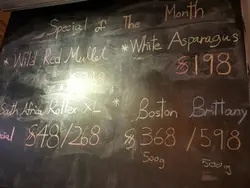 Special of The Month
* Wild Red Mullet
* White Asparagus
$198
South Africa Roller XL
* Boston Brittany
$48/268
$368/598
500g
500g